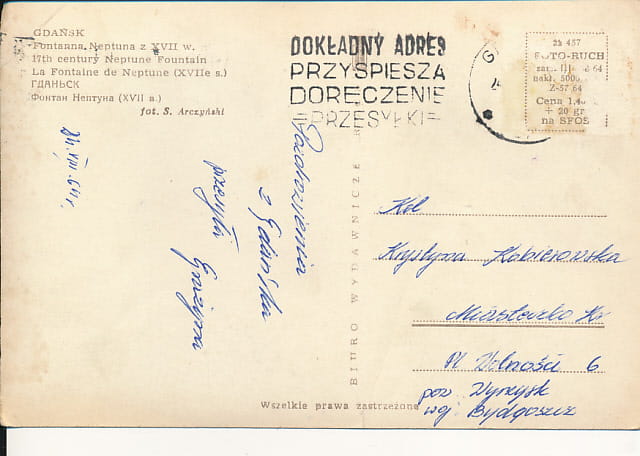 GDAŃSK
Fontanna Neptuna z XVII w.
17th century Neptune Fountain
La Fontaine de Neptune (XVIIe s.)
ГДАНЬСК
Фонтан Нептуна (XVII в.)
fot. S. Arczyński
DOKŁADNY ADRES
PRZYSPIESZA
DORĘCZENIE
=PRZESYŁKI=
ZŁ 457
FOTO-RUCH
Z-57 64
Cena 1,40
+ 20 gr
na SFOS
24.VIII.64 r.
Pozdrowienia
z Gdańska
przesyła
Grażyna
BIURO WYDAWNICZE
Kol
Krystyna Kobierowska
Miasteczko Kr
Pl Wolności 6
pow. Wyrzysk
woj. Bydgoszcz
Wszelkie prawa zastrzeżone